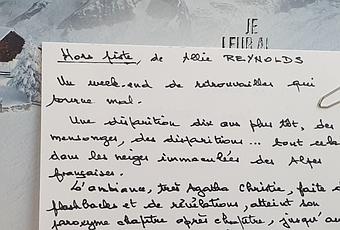 JE
LEUR AI
Hors piste, de Allie REYNOLDS
Un week-end de retrouvailles qui
tourne mal.
Une disparition dix ans plus tôt, des
mensonges, des disparitions... tout cela
dans les neiges immaculées des Alpes
françaises.
L'ambiance, très Agatha Christie, faite de
flashbacks et de révélations, atteint son
paroxysme chapitre après chapitre, jusqu'au